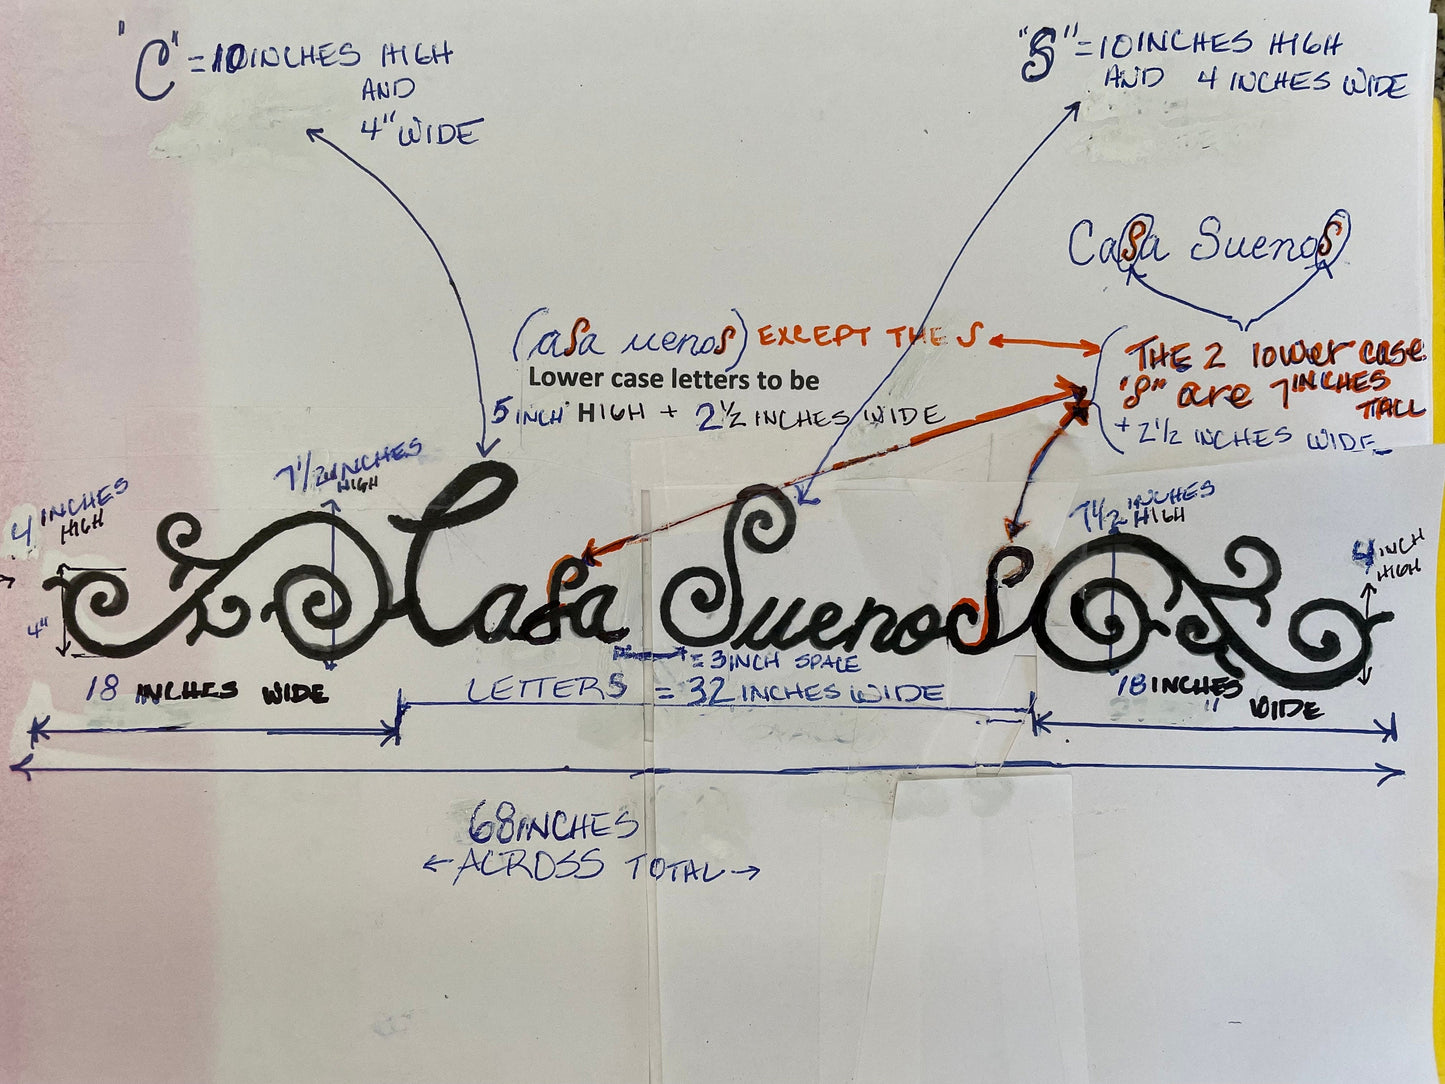 "C" = 10 INCHES HIGH
AND
4" WIDE
"S" = 10 INCHES HIGH
AND 4 INCHES WIDE
CaSa SuenoS
(aSa uenoS) EXCEPT THE S
Lower case letters to be
5 INCH HIGH + 2 1/2 INCHES WIDE
THE 2 lower case
"S" are 7 INCHES
TALL
+ 2 1/2 INCHES WIDE
4 INCHES
HIGH
7 1/2 INCHES
HIGH
7 1/2 INCHES
HIGH
4 INCH
HIGH
4"
CaSa SuenoS
= 3 INCH SPACE
18 INCHES WIDE
LETTERS = 32 INCHES WIDE
18 INCHES
" WIDE
68 INCHES
ACROSS TOTAL